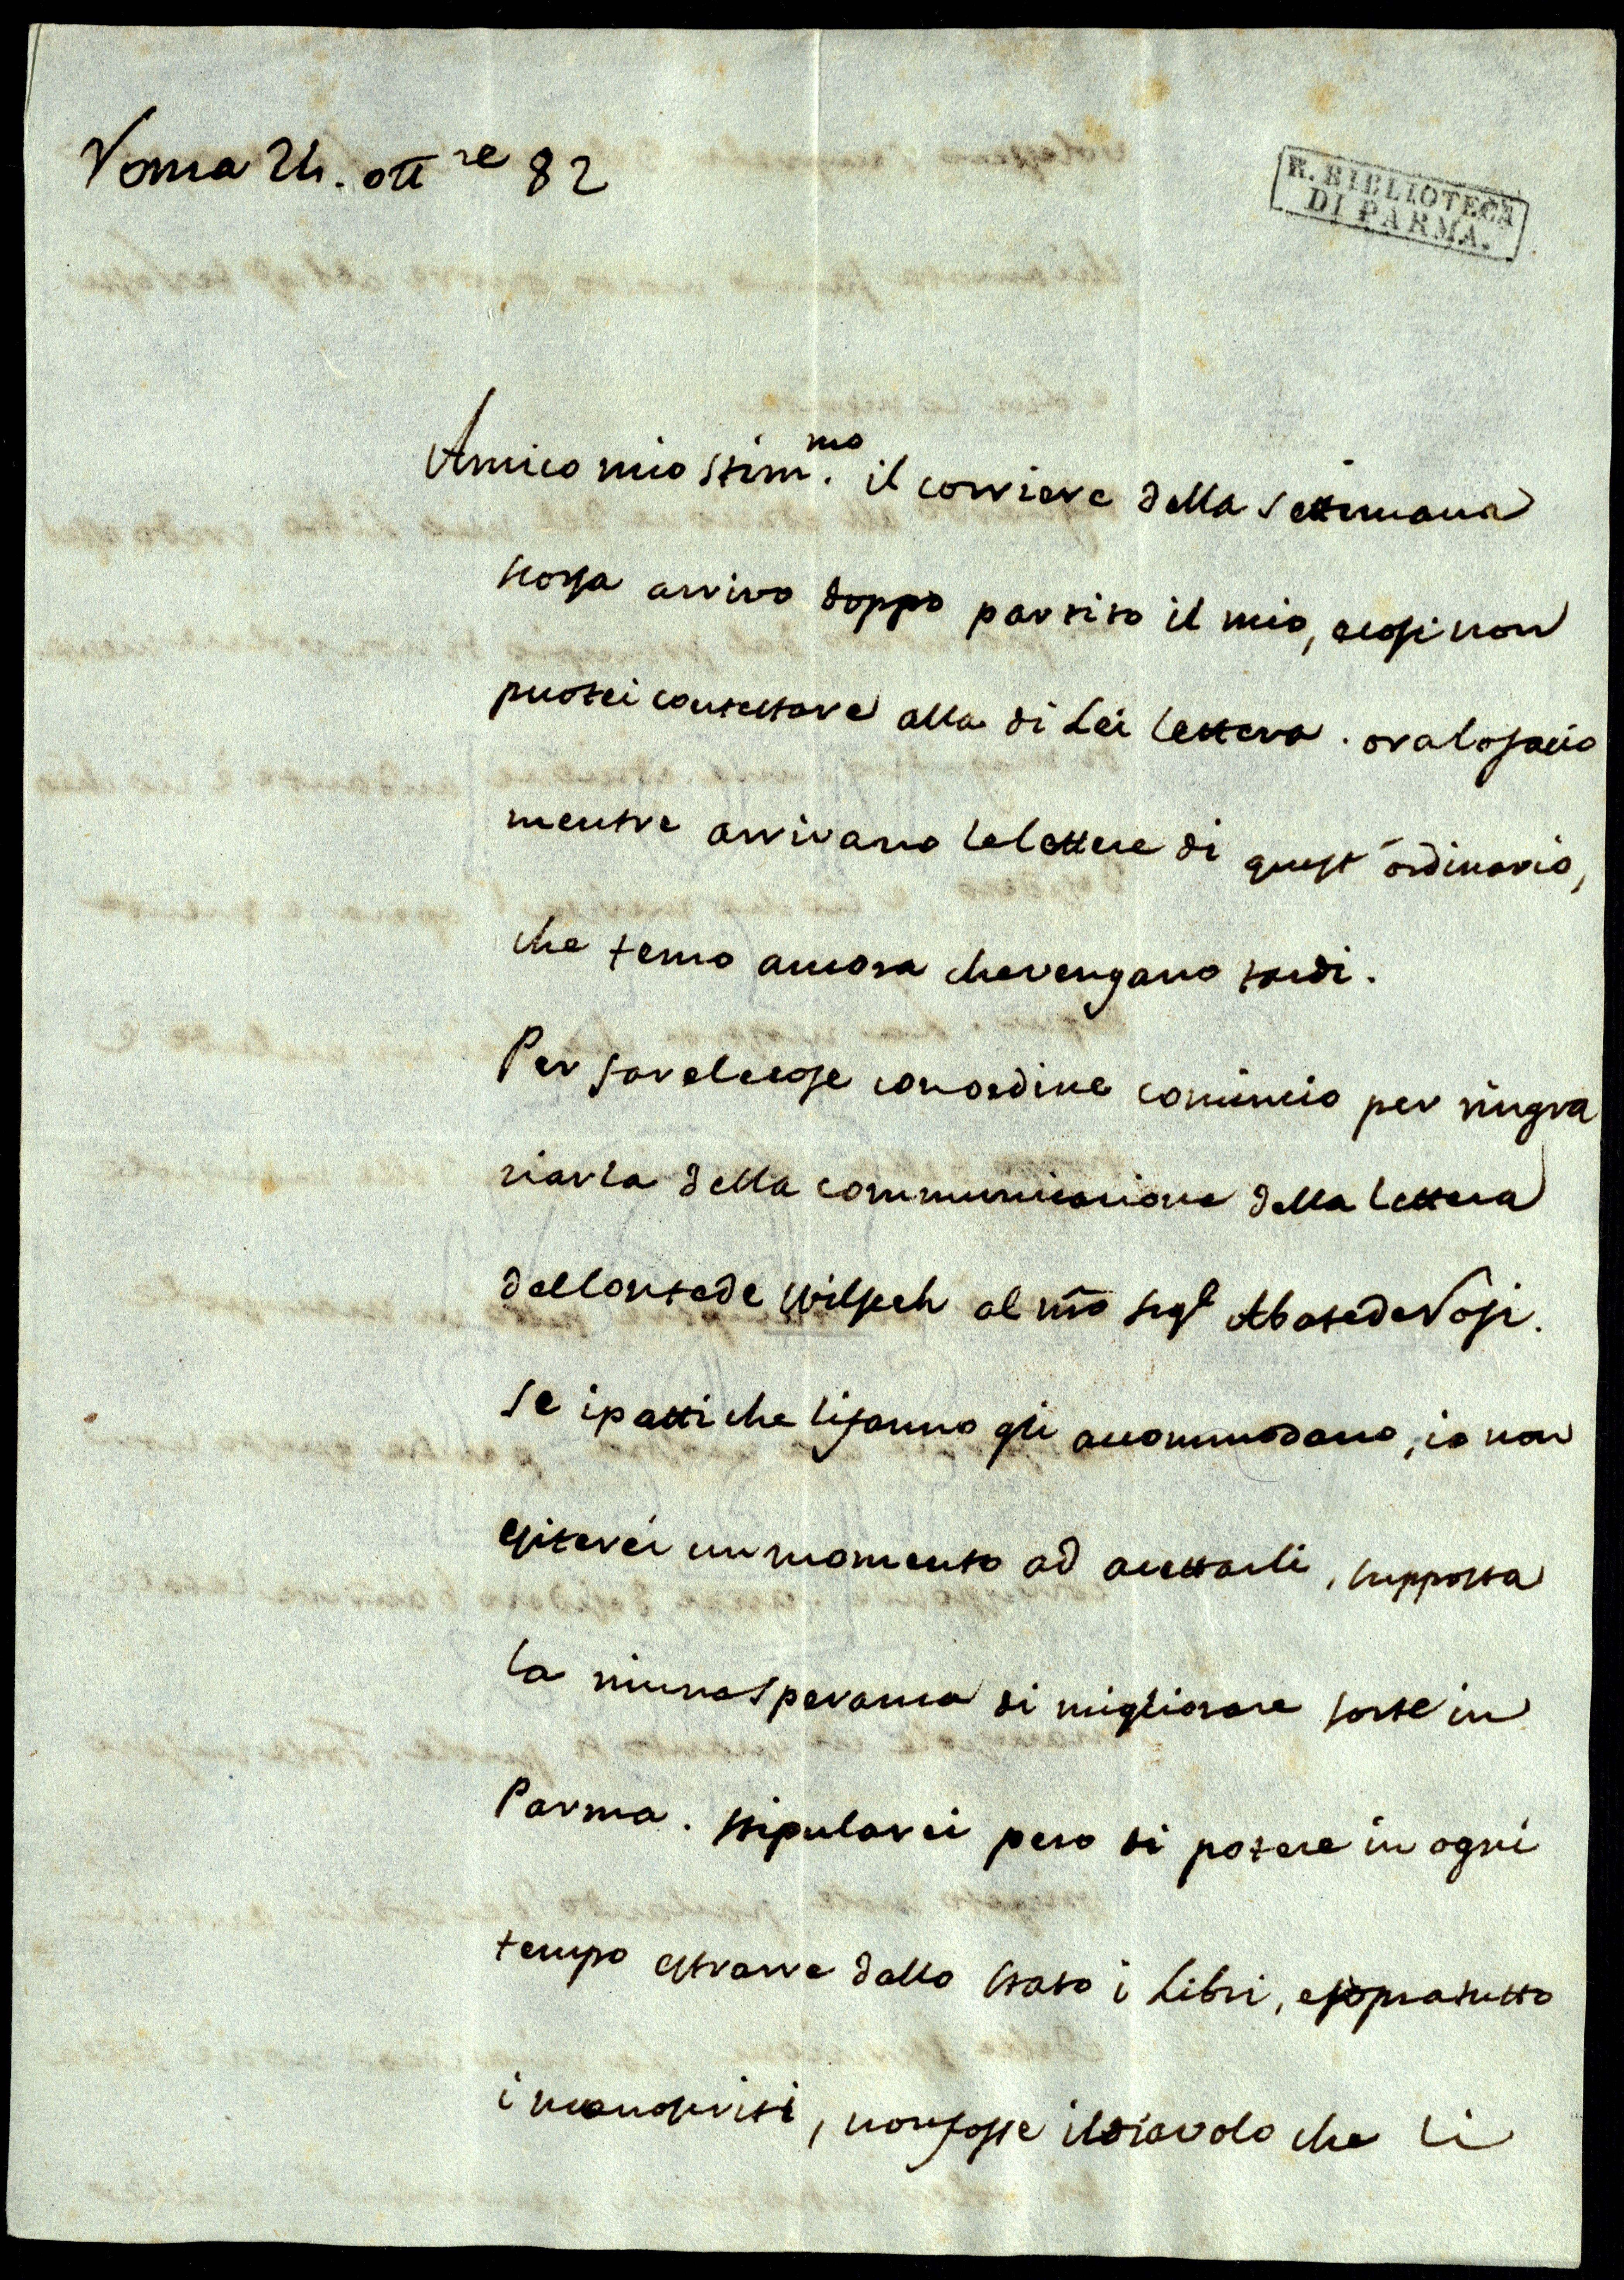 Roma 24. ott re 82
R. BIBLIOTECA
DI PARMA.
Amico mio stim.mo il corriere della settimana
scorsa arrivo doppo partito il mio, e cosi non
puotei contestare alla di Lei lettera. ora lo facio
mentre arrivano le lettere di quest' ordinario,
che temo ancora che vengano tardi.
Per far le cose con ordine comincio per ringra
ziarla della communicazione della lettera
del Conte de Wilseck al nro Sigr Abate de Rossi.
Se i patti che li fanno gli accommodano, io non
esiterei un momento ad accettarli, supposta
la niuna speranza di migliorare sorte in
Parma. stipularei pero di potere in ogni
tempo estrarre dallo stato i Libri, e sopratutto
i manoscriti, non fosse il diavolo che li